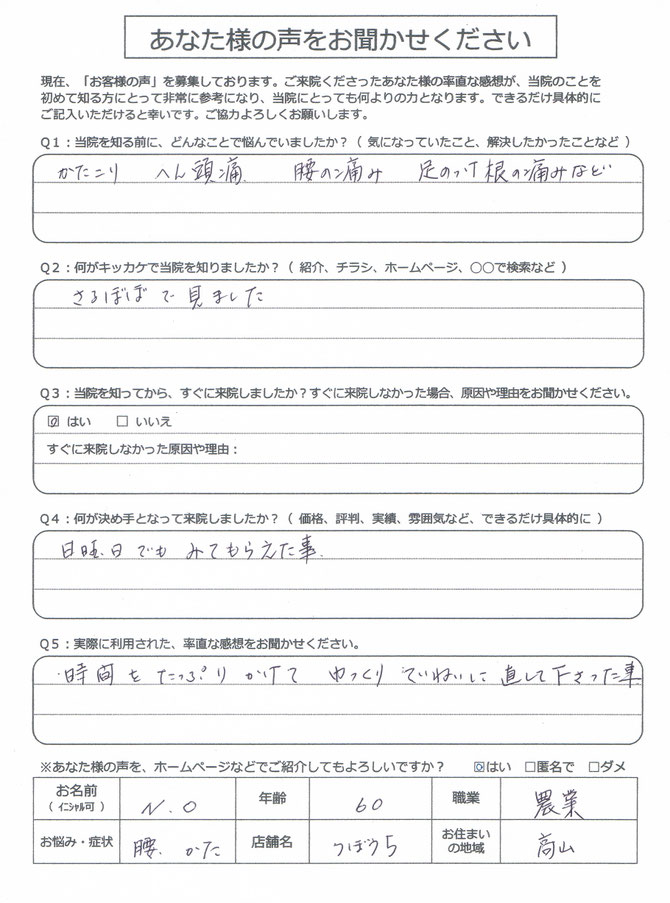 あなた様の声をお聞かせください
現在、「お客様の声」を募集しております。ご来院くださったあなた様の率直な感想が、当院のことを
初めて知る方にとって非常に参考になり、当院にとっても何よりの力となります。できるだけ具体的に
ご記入いただけると幸いです。ご協力よろしくお願いします。
Q1：当院を知る前に、どんなことで悩んでいましたか？（ 気になっていたこと、解決したかったことなど ）
かたこり へん頭痛 腰の痛み 足のつけ根の痛みなど
Q2：何がキッカケで当院を知りましたか？（ 紹介、チラシ、ホームページ、○○で検索など ）
さるぼぼで見ました
Q3：当院を知ってから、すぐに来院しましたか？すぐに来院しなかった場合、原因や理由をお聞かせください。
☑ はい □ いいえ
すぐに来院しなかった原因や理由：
Q4：何が決め手となって来院しましたか？（ 価格、評判、実績、雰囲気など、できるだけ具体的に ）
日曜日でも みてもらえた事.
Q5：実際に利用された、率直な感想をお聞かせください。
・時間をたっぷりかけて ゆっくり ていねいに 直して下さった事
※あなた様の声を、ホームページなどでご紹介してもよろしいですか？ ☑はい □匿名で □ダメ
お名前（ イニシャル可 ） N.O 年齢 60 職業 農業
お悩み・症状 腰、かた 店舗名 お住まいの地域 高山